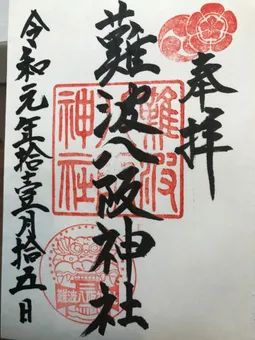 奉拝
難波八阪神社
令和元年拾壹月拾五日
難波
神社
難波八阪